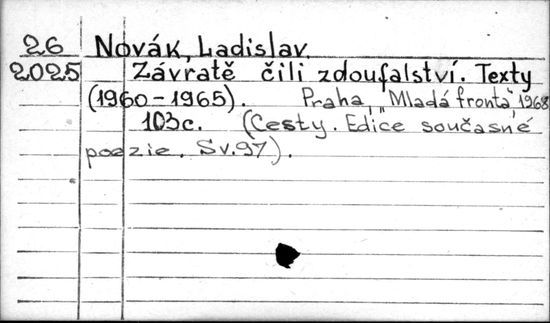 26 Novák, Ladislav.
2025 Závratě čili zdoufalství. Texty
(1960-1965). Praha, „Mladá fronta", 1968
103c. (Cesty. Edice současné
poezie. Sv.97).